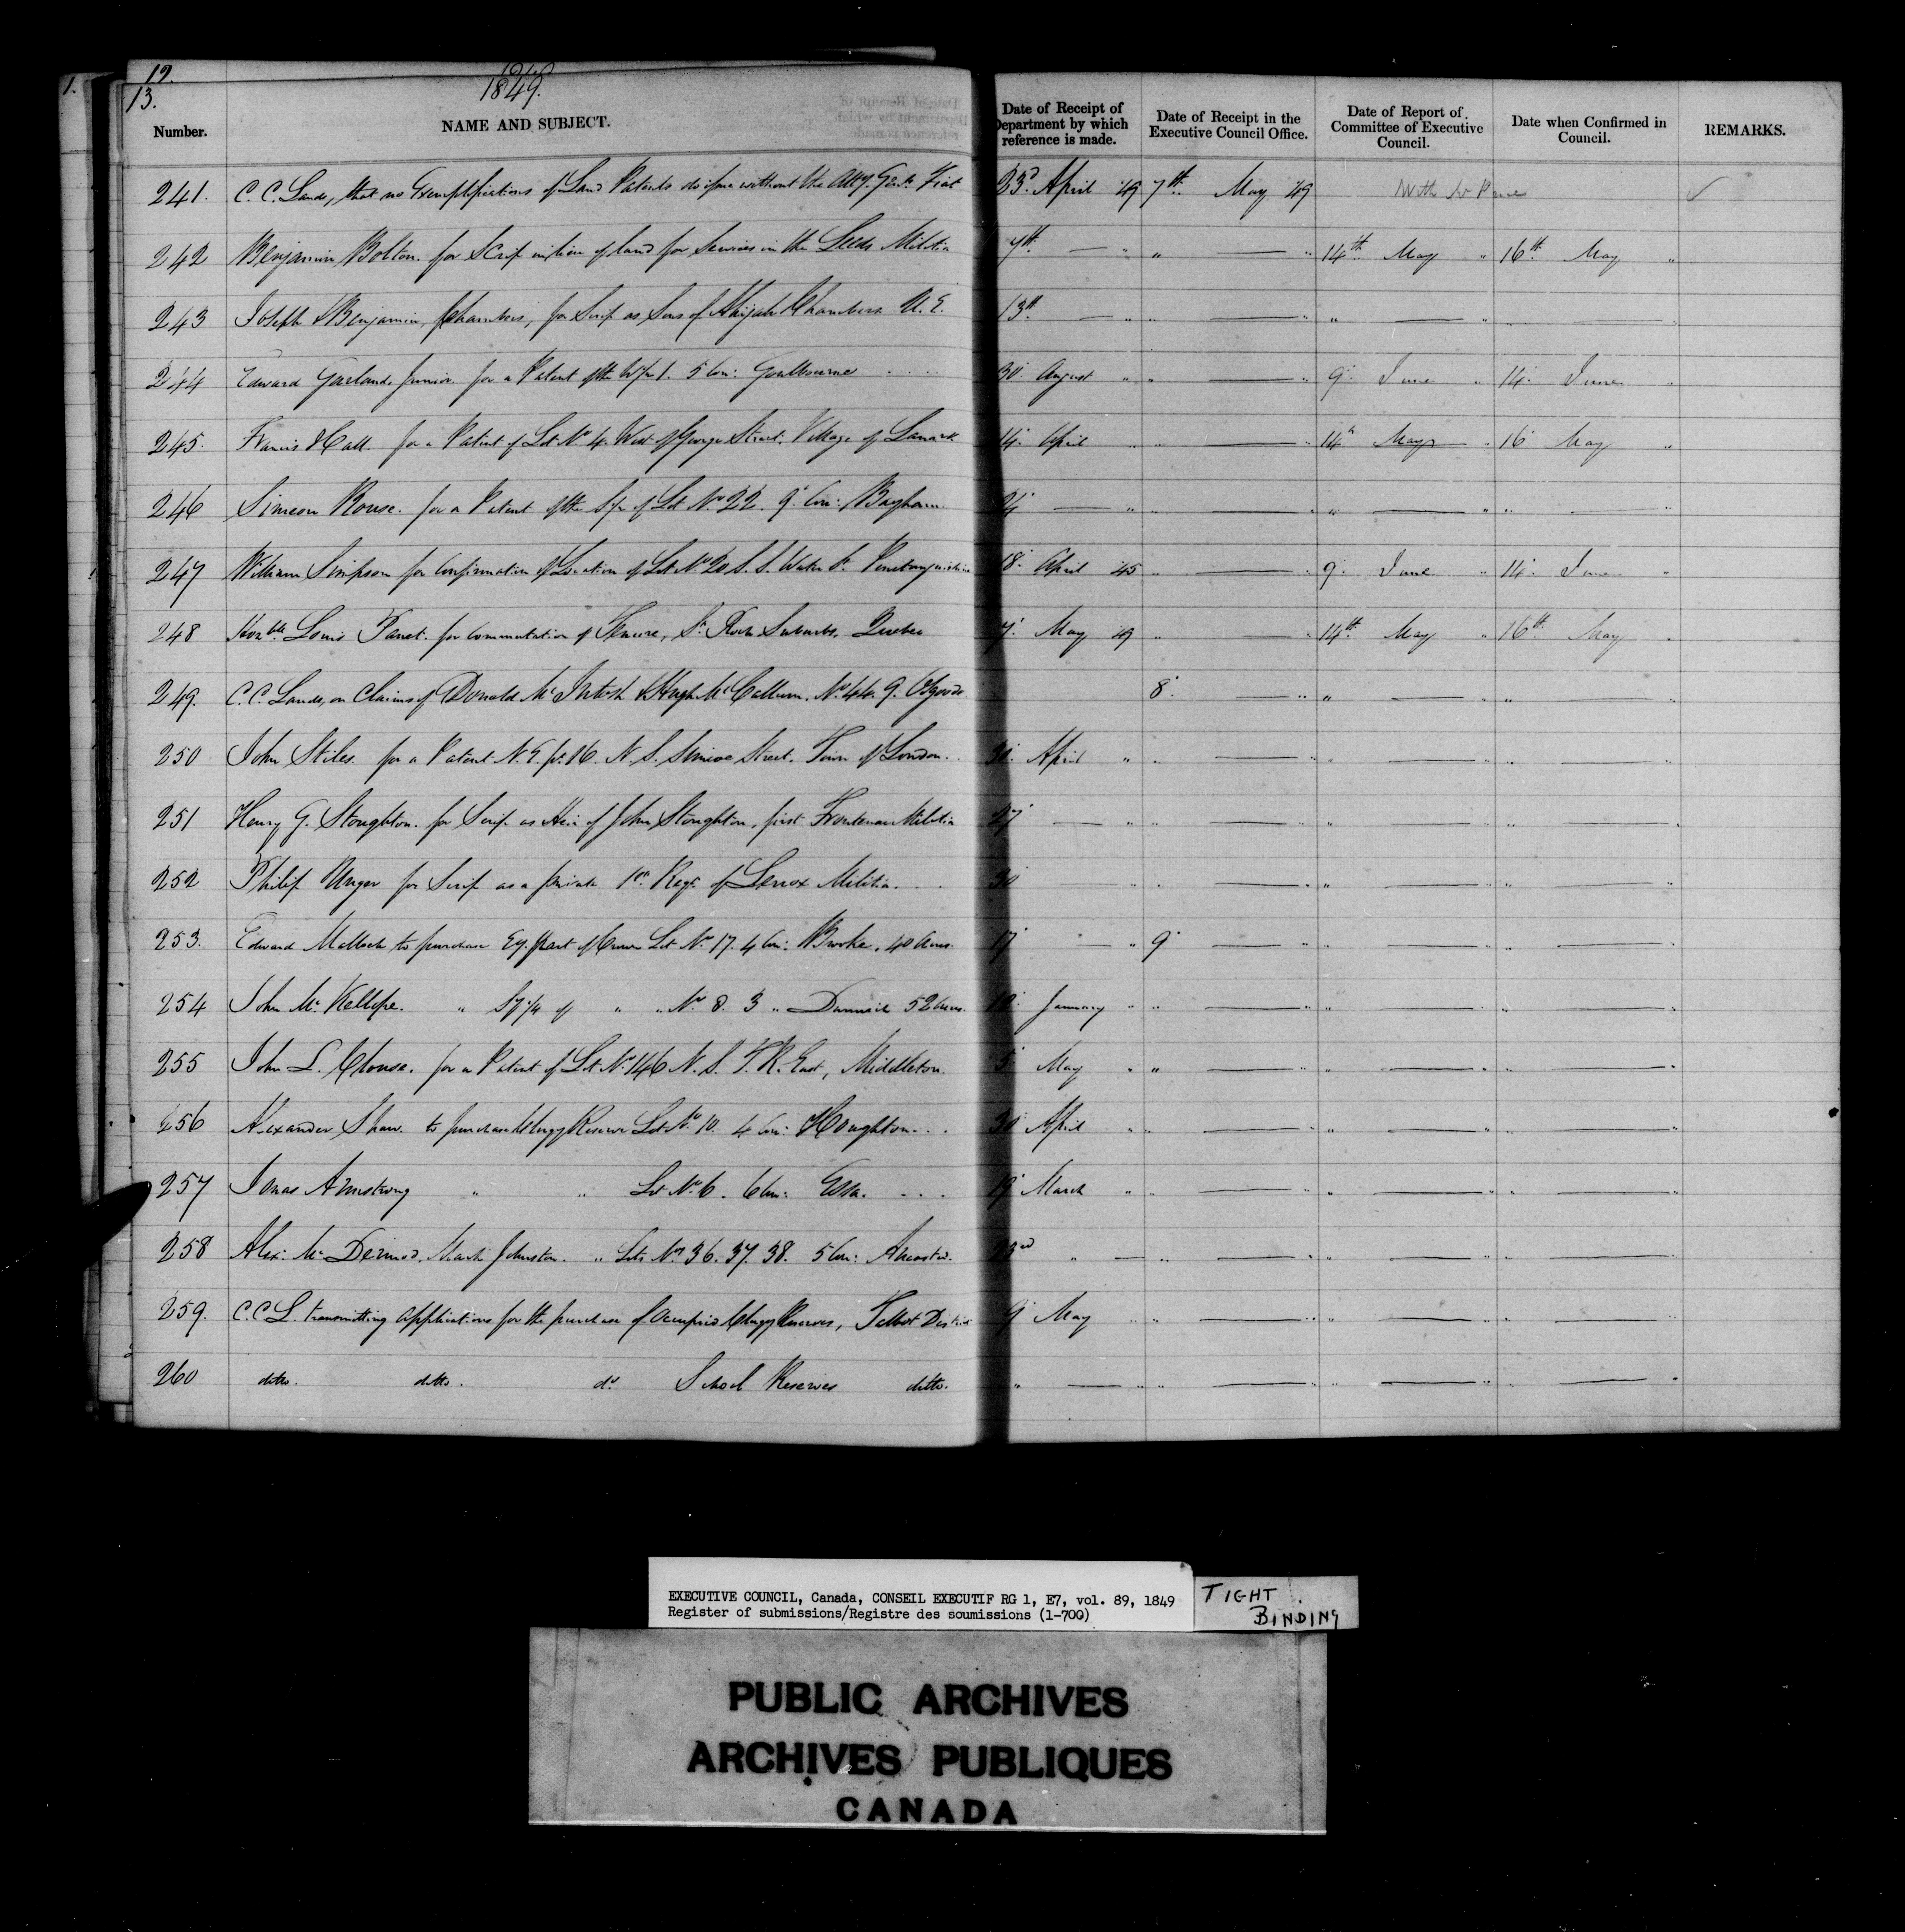 12.
13.
1849.
Number. NAME AND SUBJECT. Date of Receipt of Department by which reference is made. Date of Receipt in the Executive Council Office. Date of Report of Committee of Executive Council. Date when Confirmed in Council. REMARKS.
241. C. C. Lands, that no Exemplifications of Land Patents do issue without the Atty. Genl's Fiat 23d April 49 7th May 49 With Mr ✓
242 Benjamin Bolton. for Scrip in lieu of land for Services in the Leeds Militia 7th — " " — " 14th May " 16th May "
243 Joseph & Benjamin Chambers, for Scrip as Sons of Abijah Chambers U. E. 13th — " " — " " — " " — "
244 Edward Garland, Junior for a Patent of the W/2 1. 5 Con: Goulbourne 30 August " " — " 9 June " 14 June "
245. Francis Hall for a Patent of Lot No 4. West of George Street, Village of Lanark 14 April " " — " 14th May " 16 May "
246 Simeon Rouse. for a Patent of the S/2 of Lot No 22. 9 Con: Bayham 24 — " " — " " — " " — "
247 William Simpson for Confirmation of Location of Lot No 20 S. S. Water St. Penetanguishine 18 April 45 " — " 9 June " 14 June "
248 Honble Louis Panet. for Commutation of Tenure, St Roch Suburbs, Quebec 7 May 49 " — " 14th May " 16th May "
249. C. C. Lands, on Claims of Donald McIntosh & Hugh McCallum. No 44. 9. Osgoode 8 — " " — " " — "
250 John Stiles for a Patent N. E. pt. 16 N. S. Simcoe Street. Town of London 30 April " " — " " — " " — "
251 Henry G. Stoughton. for Scrip as Heir of John Stoughton, first Frontenac Militia 27 — " " — " " — " " — "
252 Philip Unger for Scrip as a private 1st Regt of Lenox Militia. 30 " " — " " — " " — "
253. Edward Malloch to purchase Ey. part of Crown Lot No 17. 4 Con: Brooke, 40 Acres. 17 " 9 — " " — " " — "
254 John McKellope. " Sy 1/4 of " " No 8. 3 " Dunwich 52 Acres. 10 January " " — " " — " " — "
255 John L. Chouse. for a Patent of Lot No 146 N. S. T. R. East, Middleton. 5 May " " — " " — " " — "
256 Alexander Shaw. to purchase Clergy Reserve Lot No 10. 4 Con: Houghton 30 April " " — " " — " " — "
257 Jonas Armstrong " " Lot No 6. 6 Con: Essa. 19 March " " — " " — " " — "
258 Alexr McDermod, Mark Johnston. " Lots Nos 36. 37. 38. 5 Con: Ancaster. 23rd " — " — " " — " " — "
259. C. C. L. transmitting applications for the purchase of Occupied Clergy Reserves, Talbot District 9 May " " — " " — " " — "
260 ditto. ditto. do School Reserves ditto. " — " " — " " — " " — "
EXECUTIVE COUNCIL, Canada, CONSEIL EXECUTIF RG 1, E7, vol. 89, 1849
Register of submissions/Registre des soumissions (1-700)
TIGHT BINDING
PUBLIC ARCHIVES
ARCHIVES PUBLIQUES
CANADA